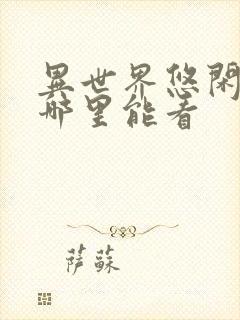 異世界悠閑
哪里能看
萨蘇